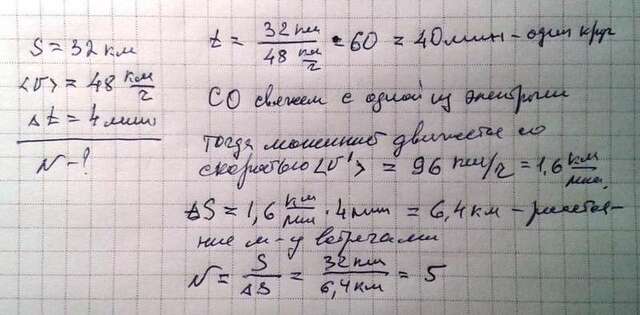 S = 32 км
<v> = 48 км/ч
Δt = 4 мин
N - ?
t = 32 км / 48 км/ч · 60 = 40 мин – один круг
СО свяжем с одной из электричек
тогда машинист движется со
скоростью <v'> = 96 км/ч = 1,6 км/мин.
ΔS = 1,6 км/мин · 4 мин = 6,4 км – расстоя-
ние м-у встречами
N = S/ΔS = 32 км / 6,4 км = 5